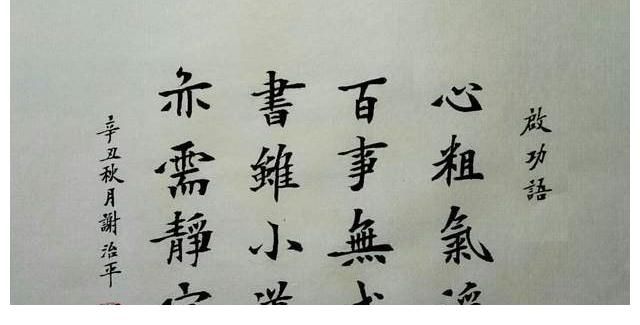 啟功語
心粗氣
百事無
書雖小道
亦需靜
辛丑秋月謝治平